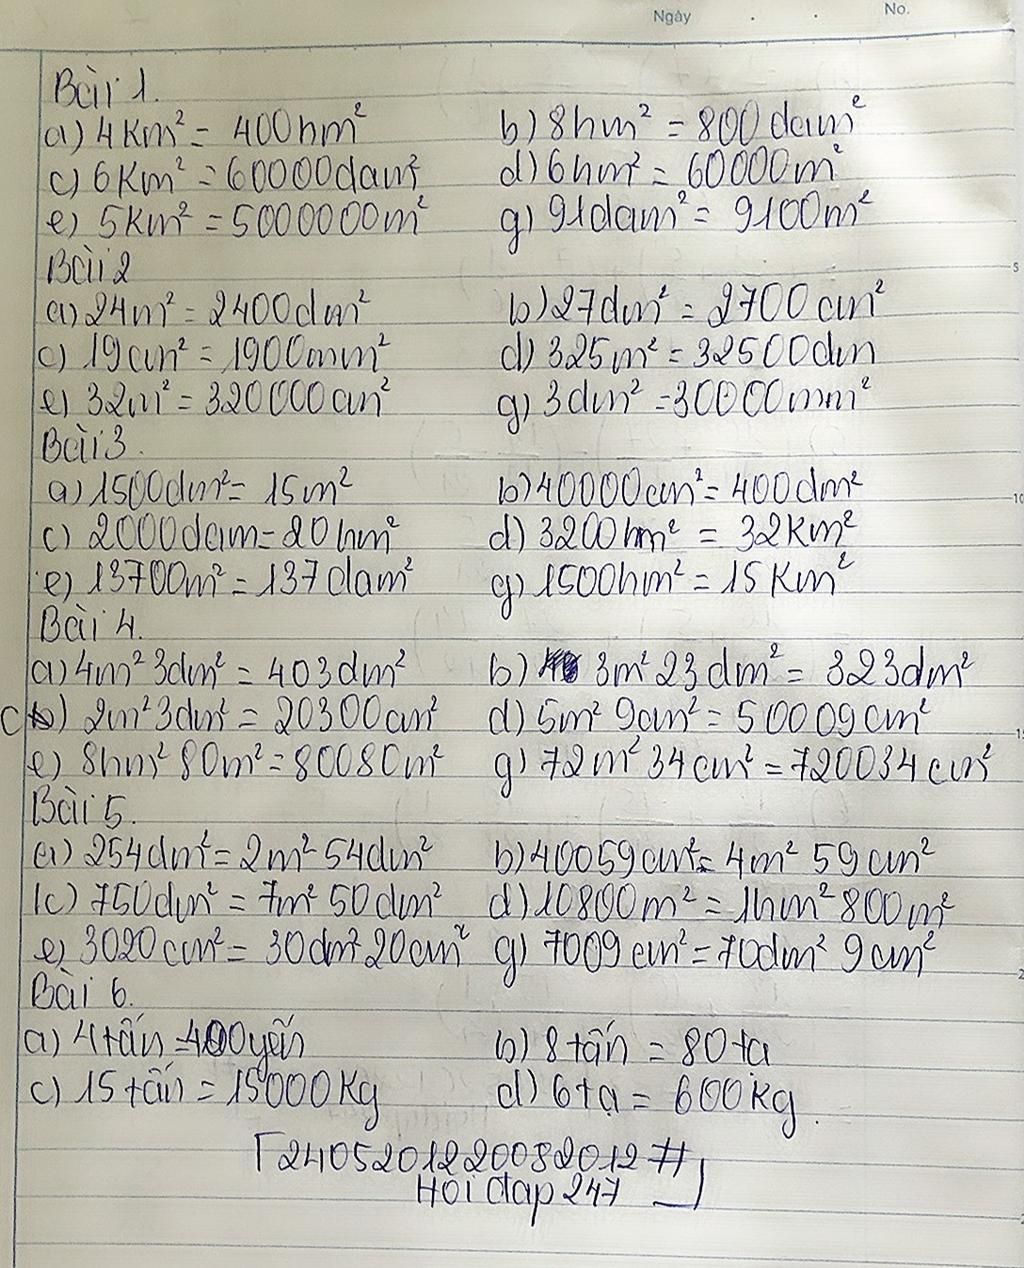 Ngày . . No.
Bài 1.
a) 4km² = 400hm² b) 8hm² = 800dam²
c) 6km² = 60000dam² d) 6hm² = 60000m²
e) 5km² = 5000000m² g) 91dam² = 9100m²
Bài 2
a) 24m² = 2400dm² b) 27dm² = 2700cm²
c) 19cm² = 1900mm² d) 325m² = 32500dm
e) 32m² = 320000cm² g) 3dm² = 30000mm²
Bài 3.
a) 1500dm² = 15m² b) 40000cm² = 400dm²
c) 2000dam = 20hm² d) 3200hm² = 32km²
e) 13700m² = 137dam² g) 1500hm² = 15km²
Bài 4.
a) 4m² 3dm² = 403dm² b) 3m² 23dm² = 323dm²
c) 2m² 3dm² = 20300cm² d) 5m² 9cm² = 50009cm²
e) 8hm² 80m² = 80080m² g) 72m² 34cm² = 720034cm²
Bài 5.
a) 254dm² = 2m² 54dm² b) 40059cm² = 4m² 59cm²
c) 750dm² = 7m² 50dm² d) 10800m² = 1hm² 800m²
e) 3020cm² = 30dm² 20cm² g) 7009cm² = 70dm² 9cm²
Bài 6.
a) 4tấn = 400yến b) 8tấn = 80tạ
c) 15tấn = 15000kg d) 6tạ = 600kg.
2405201220082012#
Hoi dap 247